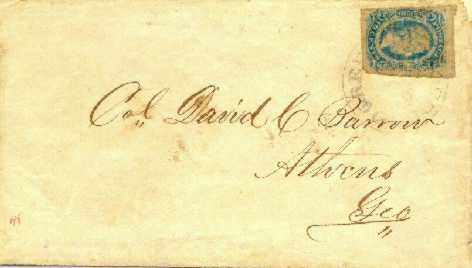 Col,, David C Barrow
Athens
Geo